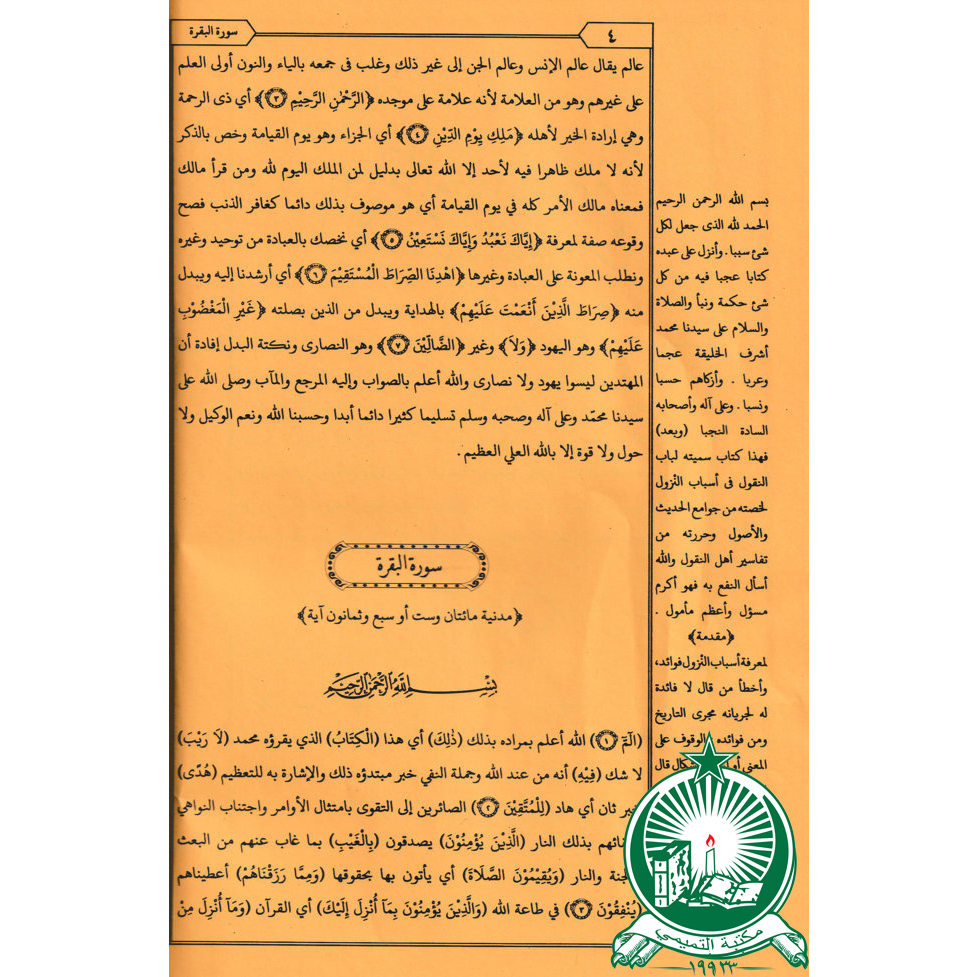 سورة البقرة
٤
عالم يقال عالم الإنس وعالم الجن إلى غير ذلك وغلب فى جمعه بالياء والنون أولى العلم
على غيرهم وهو من العلامة لأنه علامة على موجده ﴿الرَّحْمٰنِ الرَّحِيْمِ ٣﴾ أي ذى الرحمة
وهي إرادة الخير لأهله ﴿مَلِكِ يَوْمِ الدِّيْنِ ٤﴾ أي الجزاء وهو يوم القيامة وخص بالذكر
لأنه لا ملك ظاهرا فيه لأحد إلا الله تعالى بدليل لمن الملك اليوم لله ومن قرأ مالك
فمعناه مالك الأمر كله في يوم القيامة أي هو موصوف بذلك دائما كغافر الذنب فصح
وقوعه صفة لمعرفة ﴿إِيَّاكَ نَعْبُدُ وَإِيَّاكَ نَسْتَعِيْنُ ٥﴾ أي نخصك بالعبادة من توحيد وغيره
ونطلب المعونة على العبادة وغيرها ﴿اهْدِنَا الصِّرَاطَ الْمُسْتَقِيْمَ ٦﴾ أي أرشدنا إليه ويبدل
منه ﴿صِرَاطَ الَّذِيْنَ أَنْعَمْتَ عَلَيْهِمْ﴾ بالهداية ويبدل من الذين بصلته ﴿غَيْرِ الْمَغْضُوْبِ
عَلَيْهِمْ﴾ وهو اليهود ﴿وَلَا﴾ وغير ﴿الضَّالِّيْنَ ٧﴾ وهو النصارى ونكتة البدل إفادة أن
المهتدين ليسوا يهود ولا نصارى والله أعلم بالصواب وإليه المرجع والمآب وصلى الله على
سيدنا محمّد وعلى آله وصحبه وسلم تسليما كثيرا دائما أبدا وحسبنا الله ونعم الوكيل ولا
حول ولا قوة إلا بالله العلي العظيم .
سورة البقرة
﴿مدنية مائتان وست أو سبع وثمانون آية﴾
بسم الله الرحمن الرحيم
(الٓمّٓ ١) الله أعلم بمراده بذلك (ذٰلِكَ) أي هذا (الْكِتَابُ) الذي يقرؤه محمد (لَا رَيْبَ)
لا شك (فِيْهِ) أنه من عند الله وجملة النفي خبر مبتدؤه ذلك والإشارة به للتعظيم (هُدًى)
خبر ثان أي هاد (لِلْمُتَّقِيْنَ ٢) الصائرين إلى التقوى بامتثال الأوامر واجتناب النواهي
بذلك النار (الَّذِيْنَ يُؤْمِنُوْنَ) يصدقون (بِالْغَيْبِ) بما غاب عنهم من البعث
والنار (وَيُقِيْمُوْنَ الصَّلَاةَ) أي يأتون بها بحقوقها (وَمِمَّا رَزَقْنَاهُمْ) أعطيناهم
(يُنْفِقُوْنَ ٣) في طاعة الله (وَالَّذِيْنَ يُؤْمِنُوْنَ بِمَآ أُنْزِلَ إِلَيْكَ) أي القرآن (وَمَآ أُنْزِلَ مِنْ
بسم الله الرحمن الرحيم
الحمد لله الذى جعل لكل
شئ سببا . وأنزل على عبده
كتابا عجبا فيه من كل
شئ حكمة ونبأ والصلاة
والسلام على سيدنا محمد
أشرف الخليقة عجما
وعربا . وأزكاهم حسبا
ونسبا . وعلى آله وأصحابه
السادة النجبا (وبعد)
فهذا كتاب سميته لباب
النقول فى أسباب النّزول
لخصته من جوامع الحديث
والأصول وحررته من
تفاسير أهل النقول والله
أسأل النفع به فهو أكرم
مسؤل وأعظم مأمول .
﴿مقدمة﴾
لمعرفة أسباب النّزول فوائد،
وأخطأ من قال لا فائدة
له لجريانه مجرى التاريخ
ومن فوائده الوقوف على
المعنى قال
مكتبة التميمي
١٩٩٣٣